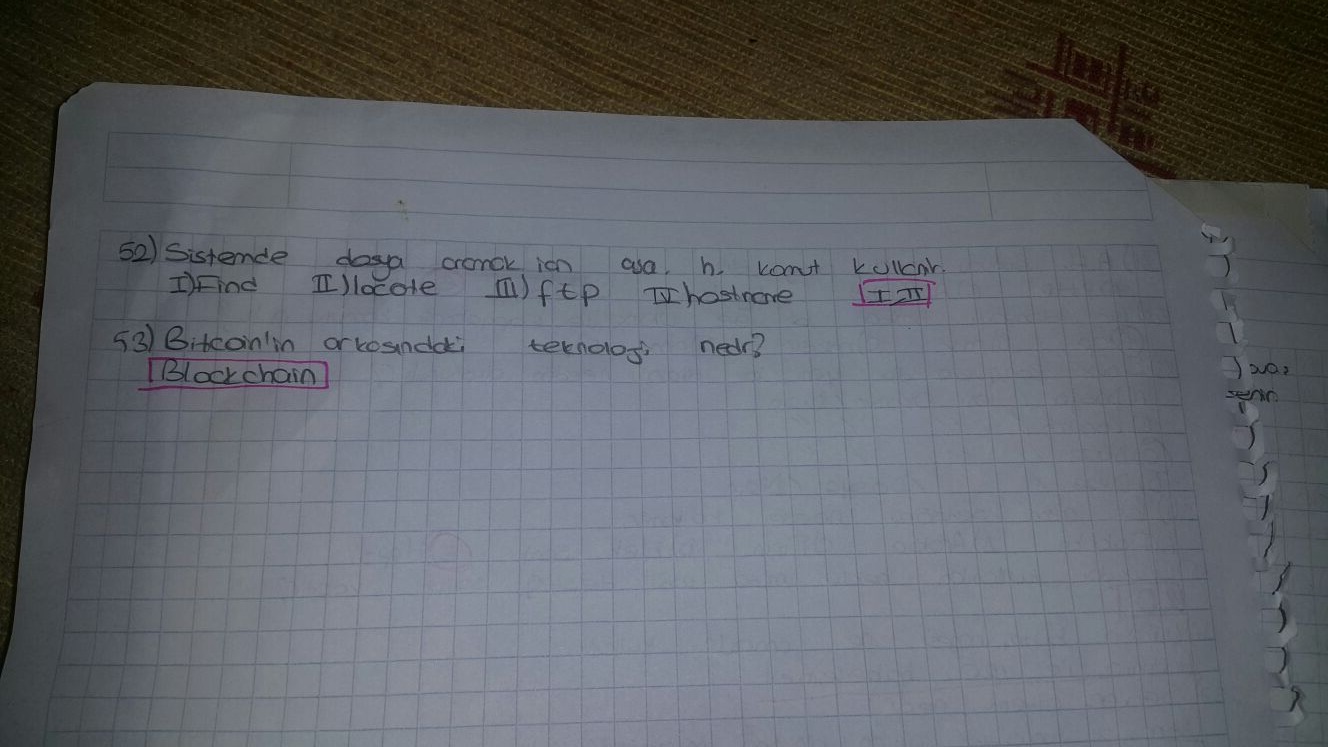 52) Sistemde dosya aramak için aşa. h. komut kullanılır.
I) Find II) locate III) ftp IV hostname I-II
53) Bitcoin'in arkasındaki teknoloji nedir?
Blockchain